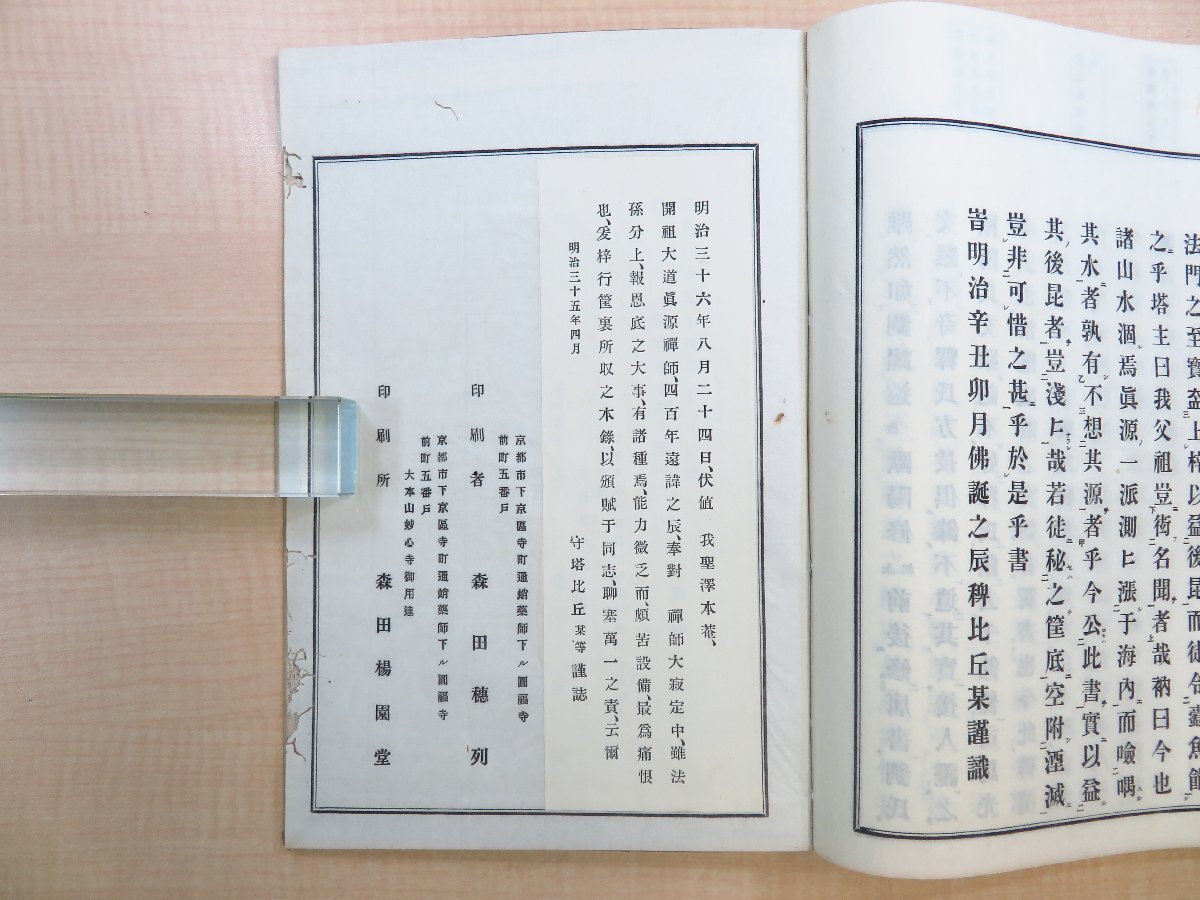 法門之至寶盍上梓以益後昆而徒合蠹魚
之乎塔主曰我父祖豈衒名聞者哉衲曰今也
諸山水涸焉眞源一派測ヒ漲于海內而噞喁
其水者孰有不想其源者乎今公此書實以益
其後昆者豈淺ヒ哉若徒秘之筐底空附湮滅
豈非可惜之甚乎於是乎書
旹明治辛丑卯月佛誕之辰稗比丘某謹識
明治三十六年八月二十四日、伏値 我聖澤本菴、
開祖大道眞源禪師、四百年遠諱之辰、奉對 禪師大寂定中、雖法
孫分上、報恩底之大事、有諸種焉、能力微乏而、頗苦設備、最爲痛恨
也、爰梓行筐裏所収之本錄、以頒賦于同志、聊塞萬一之責、云爾
守塔比丘某等謹誌
明治三十五年四月
京都市下京區寺町通蛸藥師下ル圓福寺
前町五番戶
印刷者 森田穗列
京都市下京區寺町通蛸藥師下ル圓福寺
前町五番戶
大本山妙心寺御用達
印刷所 森田楊園堂